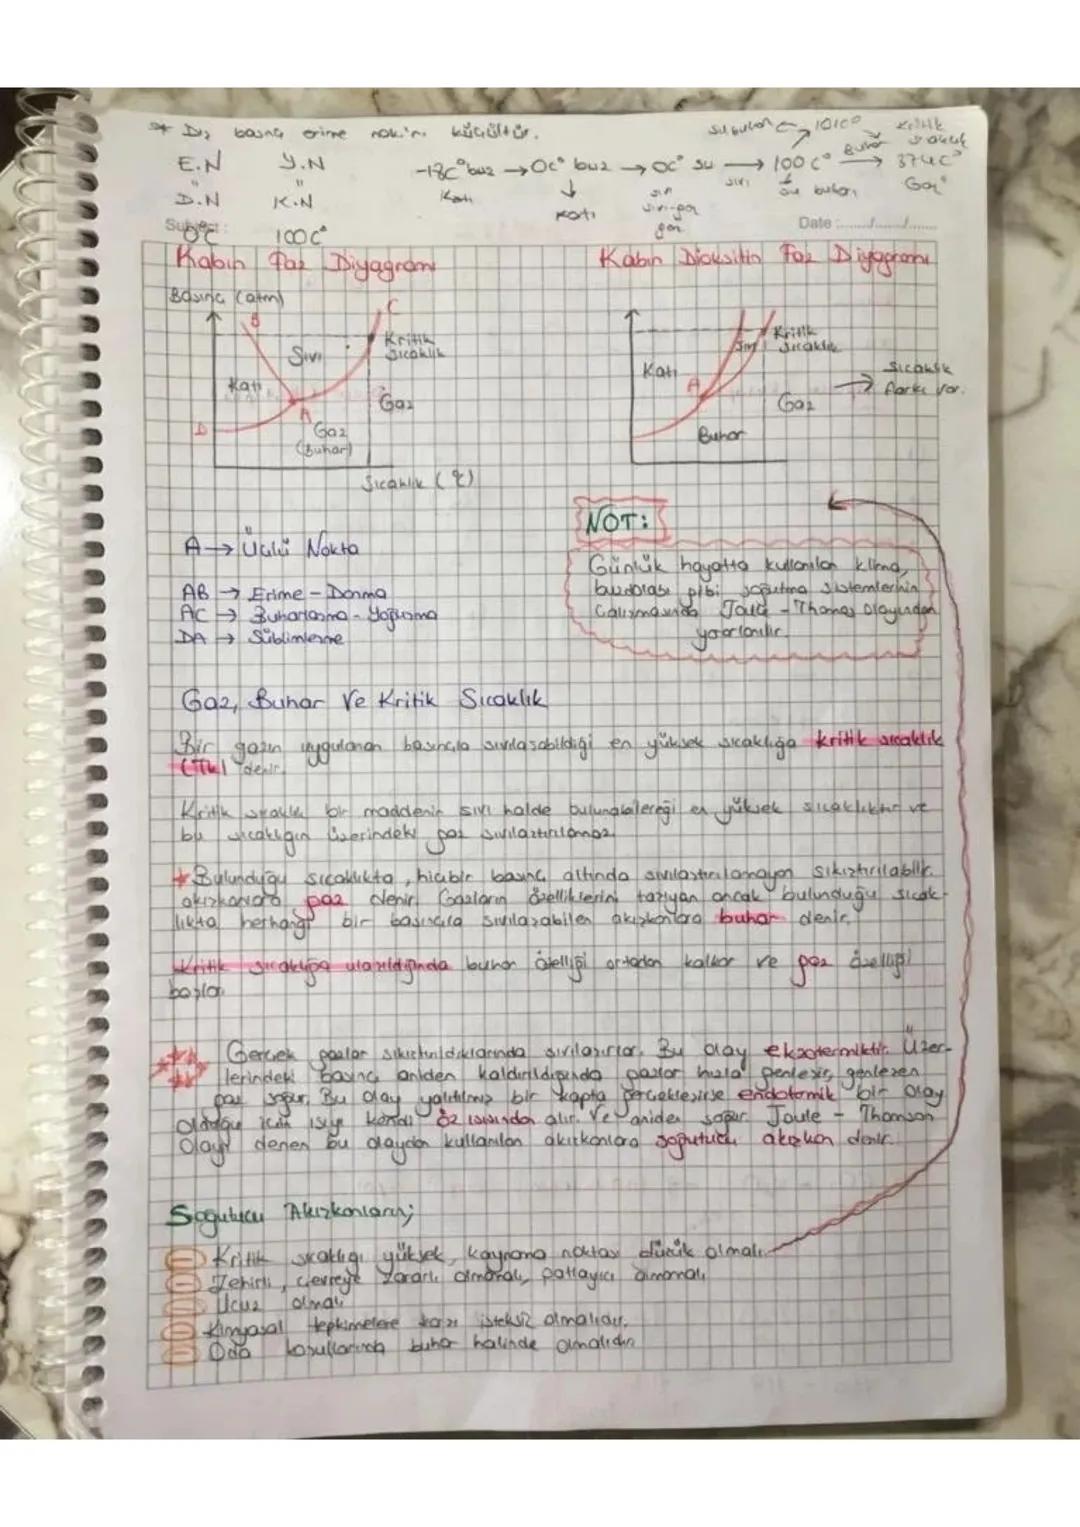 * Dış basınç erime nok.'nı küçültür.
E.N Y.N
D.N K.N
0°C 100C°
-18C° buz → 0C° buz → 0C° su → 100C° → 374C°
su buharı 101C° Buhar Kritik sıcaklık
Katı Katı sıvı su buharı Gaz
Subject: Date:
Kabın Faz Diyagramı
Kabın Dioksitin Faz Diyagramı
Basınç (atm)
B C
Kritik Sıcaklık
Sıvı
Katı
Gaz
D A
Gaz (Buhar)
Sıcaklık (°C)
Kritik Sıcaklık
Sıvı
Katı
A
Gaz
Buhar
→ Sıcaklık farkı var.
A → Üçlü Nokta
AB → Erime - Donma
AC → Buharlaşma - Yoğuşma
DA → Süblimleşme
NOT:
Günlük hayatta kullanılan klima,
buzdolabı gibi soğutma sistemlerinin
çalışmasında Joule - Thomas olayından
yararlanılır.
Gaz, Buhar Ve Kritik Sıcaklık
Bir gazın uygulanan basınçla sıvılaşabildiği en yüksek sıcaklığa kritik sıcaklık
(Tk) denir.
Kritik sıcaklık bir maddenin sıvı halde bulunabileceği en yüksek sıcaklıktır ve
bu sıcaklığın üzerindeki gaz sıvılaştırılamaz.
* Bulunduğu sıcaklıkta, hiçbir basınç altında sıvılaştırılamayan sıkıştırılabilir
akışkanlara gaz denir. Gazların özelliklerini taşıyan ancak bulunduğu sıcak-
lıkta herhangi bir basınçla sıvılaşabilen akışkanlara buhar denir.
Kritik sıcaklığa ulaşıldığında buhar özelliği ortadan kalkar ve gaz özelliği
başlar.
Gerçek gazlar sıkıştırıldıklarında sıvılaşırlar. Bu olay ekzotermiktir. Üzer-
lerindeki basınç aniden kaldırıldığında gazlar hızla genleşir, genleşen
gaz soğur. Bu olay yalıtılmış bir kapta gerçekleşirse endotermik bir olay
olduğu için ısıyı kendi öz ısısından alır. Ve aniden soğur. Joule - Thomson
Olayı denen bu olayda kullanılan akışkanlara soğutucu akışkan denir.
Soğutucu Akışkanların;
Kritik sıcaklığı yüksek, kaynama noktası düşük olmalı.
Zehirli, çevreye zararlı olmamalı, patlayıcı olmamalı.
Ucuz olmalı
Kimyasal tepkimelere karşı isteksiz olmalıdır.
Oda koşullarında buhar halinde olmalıdır.